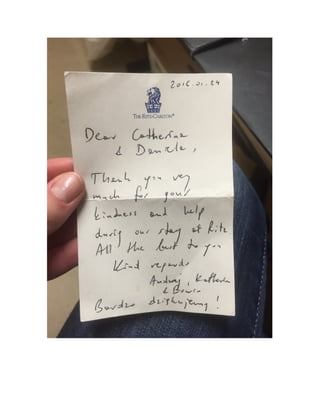 2016.01.24
THE RITZ-CARLTON®
Dear Catherine
& Daniela,
Thank you very
much for your
kindness and help
during our stay at Ritz
All the best to you
Kind regards
Andrzej,
&
Bardzo dziękujemy!